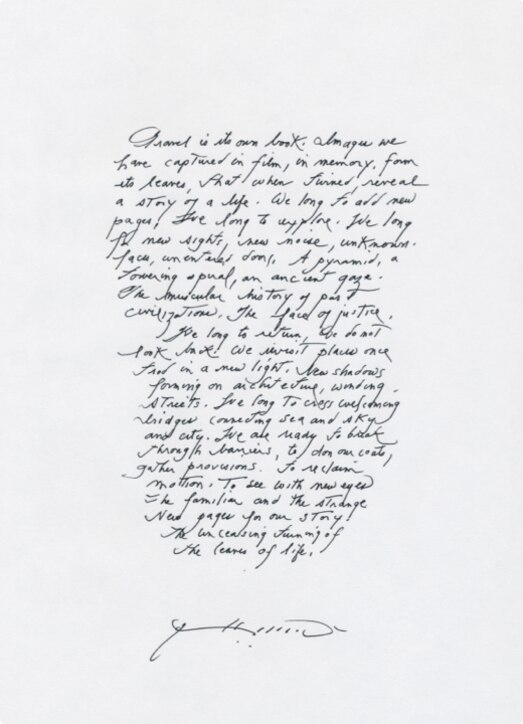 Travel is its own book. Images we
have captured in film, in memory, form
its leaves, that when turned, reveal
a story of a life. We long to add new
pages, We long to explore. We long
for new sights, new noise, unknown
faces, unentered doors, A pyramid, a
towering spiral, an ancient gaze.
The muscular history of past
civilizations. The face of justice.
We long to return, We do not
look back! We revisit places once
trod in a new light. New shadows
forming on architecture, winding
streets. We long to cross welcoming
bridges connecting sea and sky
and city. We are ready to break
through barriers, to don our coats,
gather provisions. To reclaim
motion. To see with new eyes
The familiar and the strange
New pages for our story!
The unceasing turning of
the leaves of life.